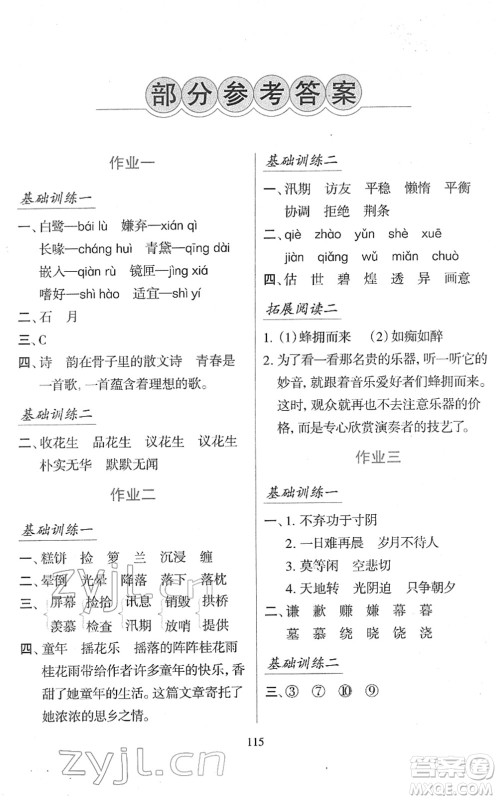 部分参考答案
作业一
基础训练一
一、白鹭—bái lù　嫌弃—xián qì
长喙—cháng huì　青黛—qīng dài
嵌入—qiàn rù　镜匣—jìng xiá
嗜好—shì hào　适宜—shì yí
二、石　月
三、C
四、诗　韵在骨子里的散文诗　青春是
一首歌,一首蕴含着理想的歌。
基础训练二
二、收花生　品花生　议花生　议花生
朴实无华　默默无闻
作业二
基础训练一
一、糕饼　捡　箩　兰　沉浸　缠
二、晕倒　光晕　降落　落下　落枕
三、屏幕　捡拾　讯息　哨兵　拱桥
羡慕　检查　汛期　放哨　提供
四、童年　摇花乐　摇落的阵阵桂花雨
桂花雨带给作者许多童年的快乐,香
甜了她童年的生活。这篇文章寄托了
她浓浓的思乡之情。
基础训练二
一、汛期　访友　平稳　懒惰　平衡
协调　拒绝　荆条
二、qiè　zhào　yǔn　chóu　qiǎng
jiàn　qiǎng　wǔ　miǎn　chuò
四、估　世　碧　煌　透　异　画意
拓展阅读二
1. (1)蜂拥而来　(2)如痴如醉
2. 为了看一看那名贵的乐器,听一听它的
妙音,就招致着音乐爱好者们蜂拥而来。
这时,观众就再也不去注意乐器的价
格,而是专心欣赏演奏者的技艺了。
作业三
基础训练一
一、1. 不弃功于寸阴
2. 一日难再晨　岁月不待人
3. 莫等闲　空悲切
4. 天地转　光阴迫　只争朝夕
二、谦　歉　赚　嫌　幕　暮
墓　慕　绕　晓　浇　烧
基础训练二
三、③　⑦　⑩　⑨
115
zyjl.cn
zyjl.cn
答案圈
MXQE.COM